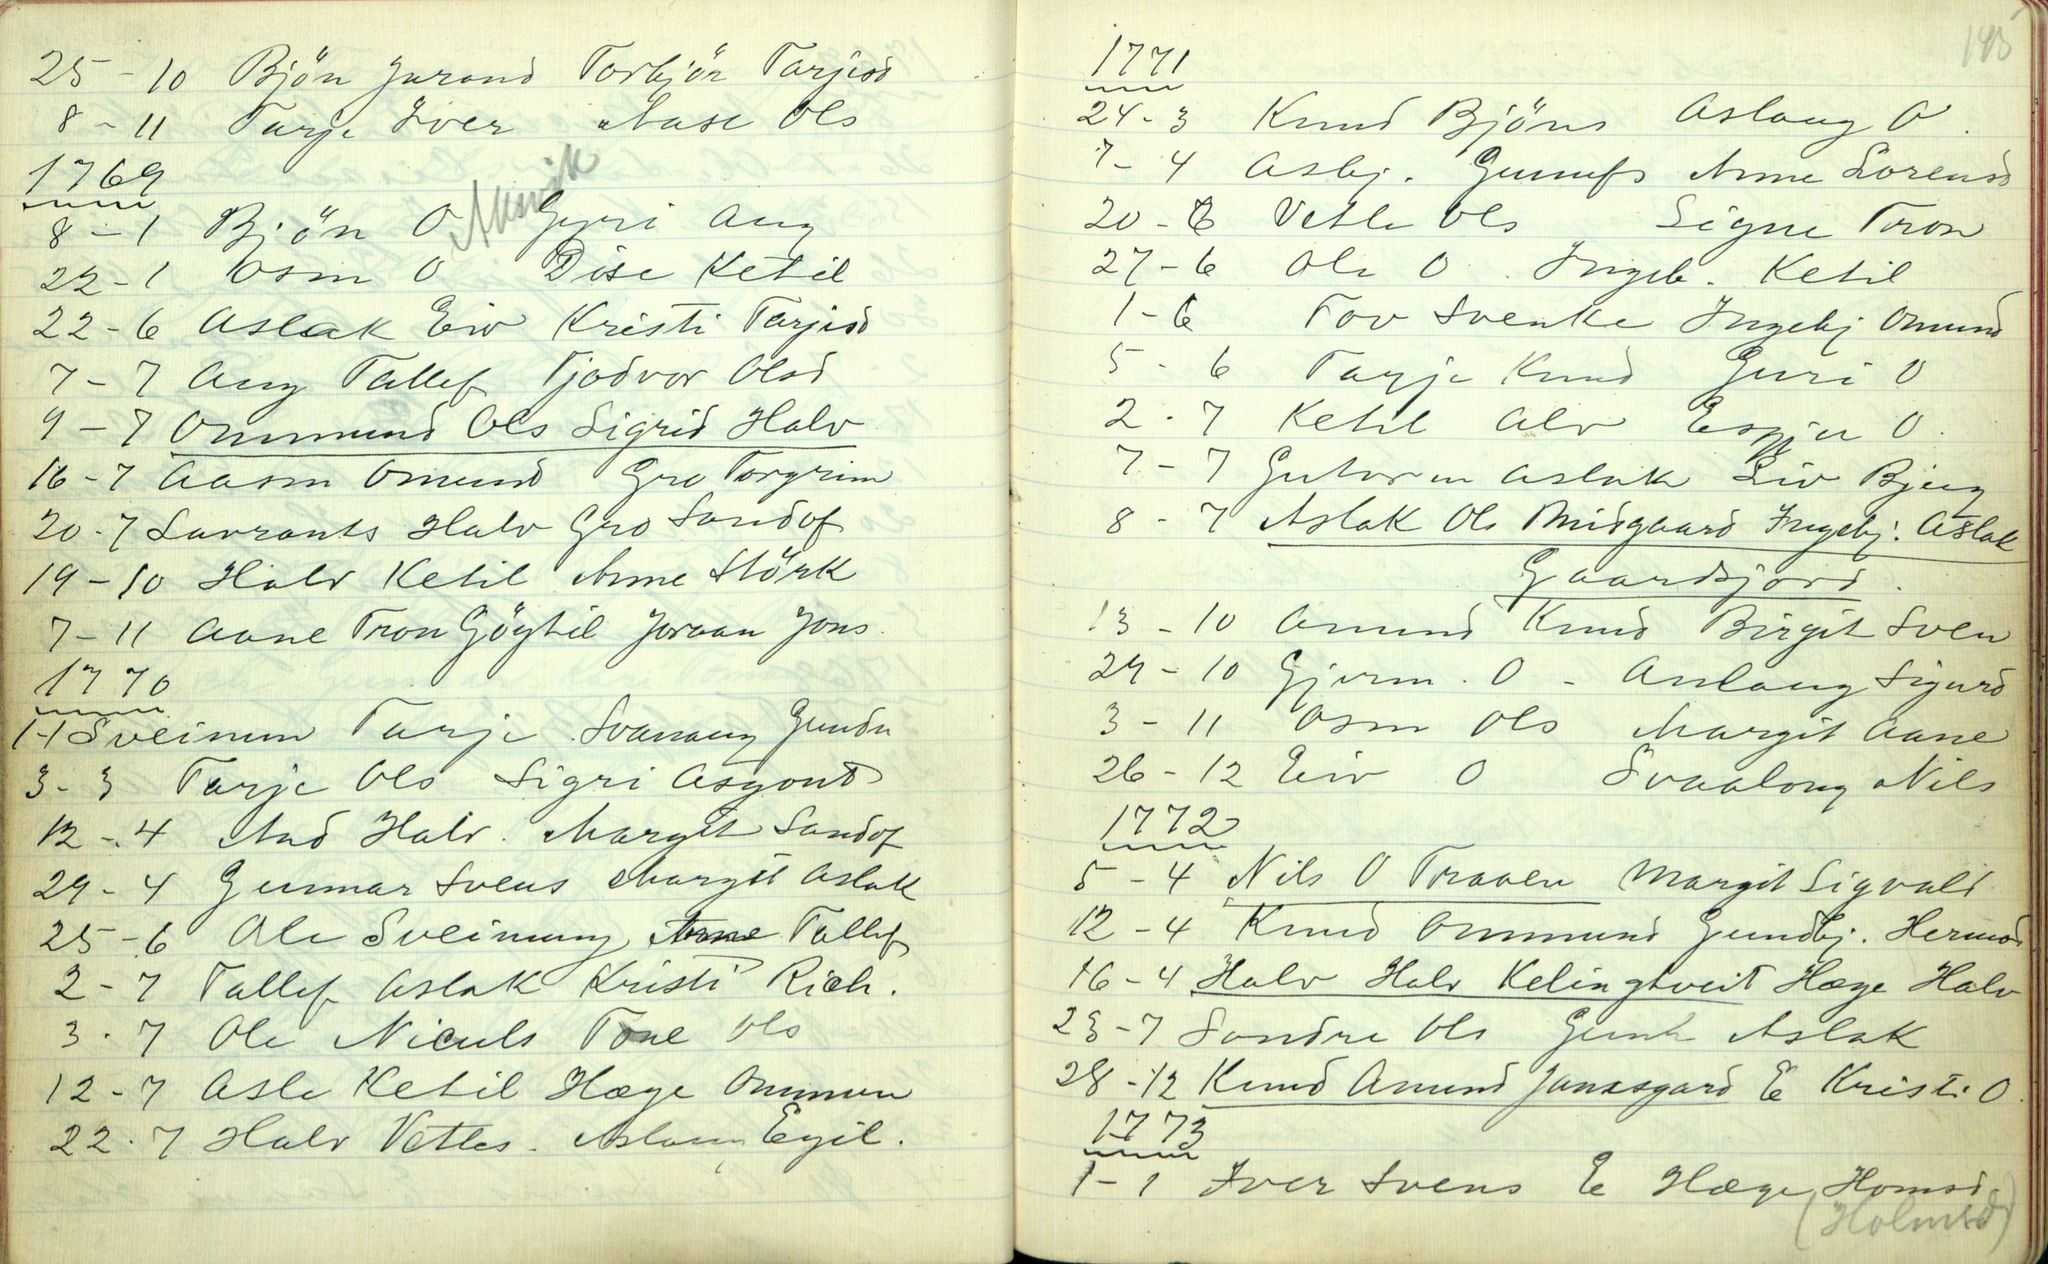 25-10 Bjön Jurand Torbjör Tarjesd
8-11 Tarje Iver Aase Ols
1769
8-1 Bjön O Gyri Aug
22-1 Osm O Dise Ketil
22-6 Aslak Eiv Kristi Tarjisd
7-7 Aug Tallef Tjodvor Olsd
9-7 Ommund Ols Sigrid Halv
16-7 Aasm Omund Gro Torgrim
20-7 Lavrants Halv Gro Sondof
19-10 Halv Ketil Anne Störk
7-11 Aane Tron Göytil Joraan Jons
1770
1-1 Sveinum Tarje Svanaug Gundu
3-3 Tarje Ols Sigri Asgont
12-4 And Halv. Margit Sondof
29-4 Gunnar Svens Margit Aslak
25-6 Ole Sveinung Anne Tallef
2-7 Tallef Aslak Kristi Rich.
3-7 Ole Niculs Tone Ols
12-7 Asle Ketil Hæge Ommun
22-7 Halv Vetles. Aslaug Egil.
145
1771
24-3 Knud Bjöns Aslaug O.
7-4 Asbj. Gunufs Anne Lorensd
20-6 Vetle Ols Signe Tron
27-6 Ole O. Ingeb. Ketil
1-6 Tov Svenke Ingebj Omund
5-6 Tarje Knud Guri O
2-7 Ketil Alv Espjer O.
7-7 Gutorm Aslak Liv Bjug
8-7 Aslak Ols Midgaard Ingebj. Aslak
Gaardsjord.
13-10 Amund Knud Birgit Sven
29-10 Gjerm. O - Anlaug Sigurd
3-11 Osm Ols Margit Aane
26-12 Eiv O Svaalong Nils
1772
5-4 Nils O Traaen Margit Sigvald
12-4 Knud Ommund Gundbj. Hermod
16-4 Halv Halv Kelingtveit Hæge Halv
23-7 Sondre Ols Gunh Aslak
28-12 Knud Amund Jonasgard E Kristi O.
1773
1-1 Iver Svens E Hæge Homsd.
(Holmsd)